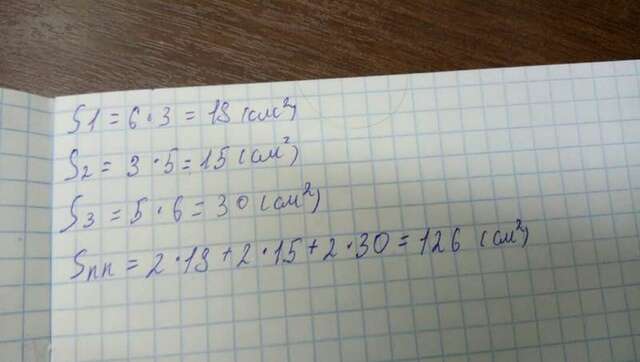 S1 = 6 · 3 = 18 (см²)
S2 = 3 · 5 = 15 (см²)
S3 = 5 · 6 = 30 (см²)
Sпп = 2 · 18 + 2 · 15 + 2 · 30 = 126 (см²)